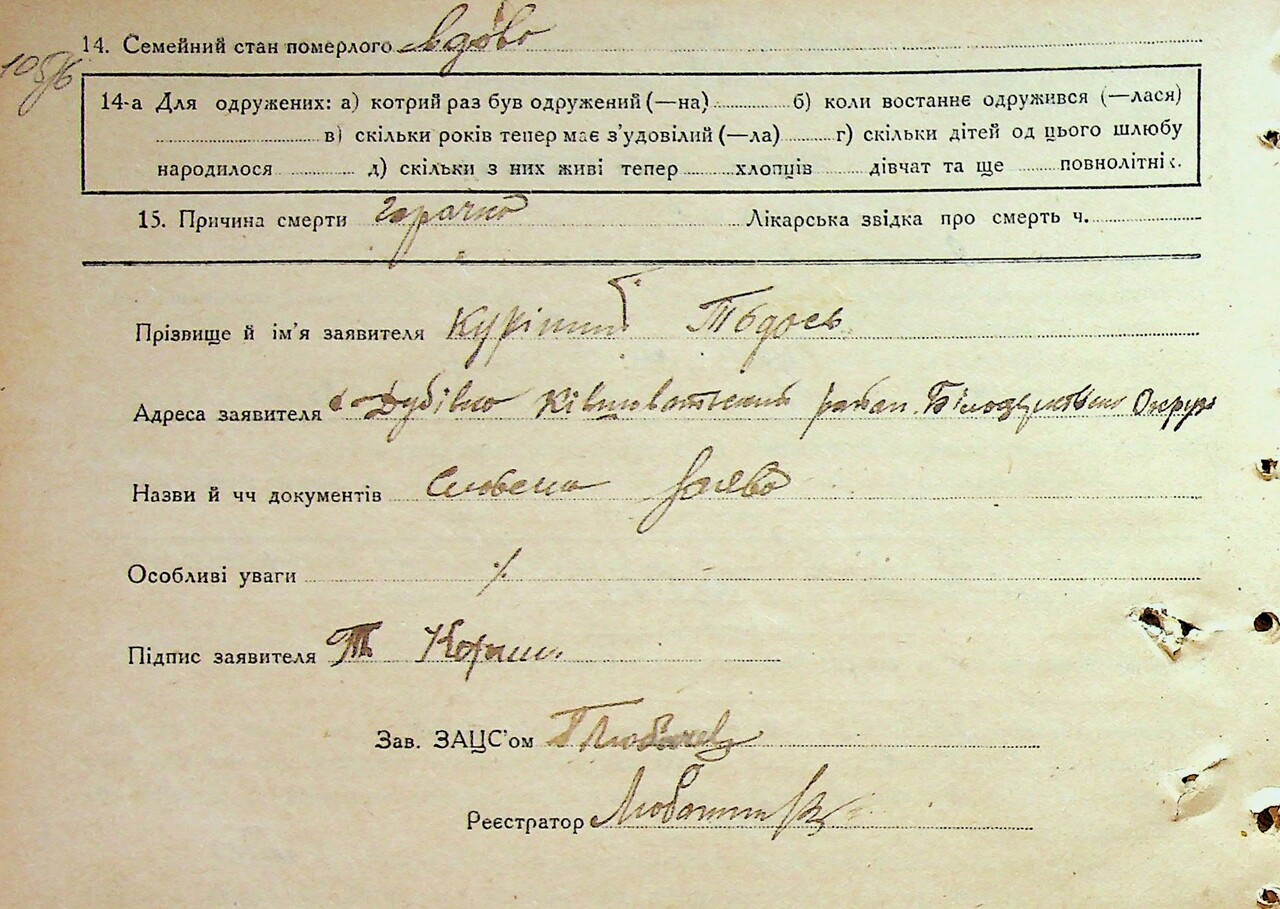 14. Семейний стан померлого вдова
14-а Для одружених: а) котрий раз був одружений (—на) б) коли востаннє одружився (—лася)
в) скільки років тепер має з'удовілий (—ла) г) скільки дітей од цього шлюбу
народилося д) скільки з них живі тепер хлопців дівчат та ще повнолітніх.
15. Причина смерти горячка Лікарська звідка про смерть ч.
Прізвище й ім'я заявителя Тодось
Адреса заявителя с Дубівка Ківшоватський район Білоцерківська Округа
Назви й чч документів Словесна заява
Особливі уваги ٪
Підпис заявителя Т
Зав. ЗАЦС'ом
Реєстратор